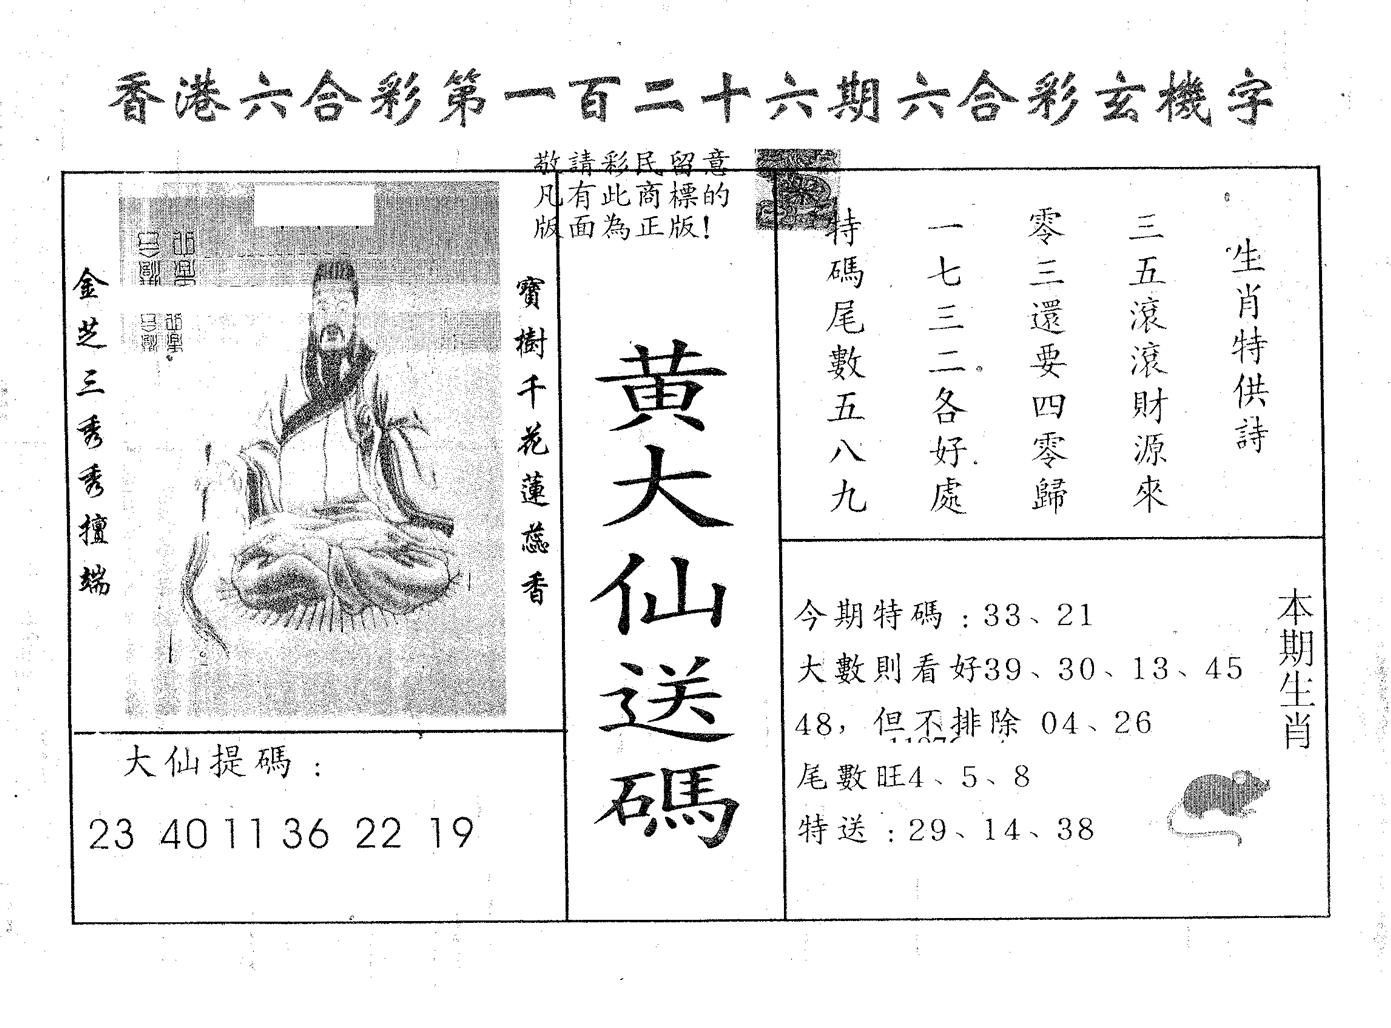 香港六合彩第一百二十六期六合彩玄機字
敬請彩民留意
凡有此商標的
版面為正版!
寶樹千花蓮蕊香
金芝三秀秀擅端
大仙提碼:
23 40 11 36 22 19
黃大仙送碼
生肖特供詩
三五滾滾財源來
零三還要四零歸
一七三二各好處
特碼尾數五八九
本期生肖
今期特碼:33、21
大數則看好39、30、13、45
48,但不排除 04、26
尾數旺4、5、8
特送:29、14、38